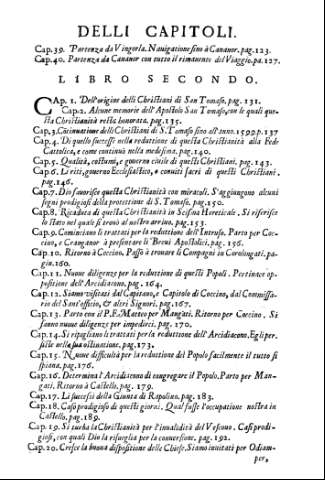 DELLI CAPITOLI.
Cap. 39. Partenza da Vingorla. Navigatione sino à Cananor. pag. 123.
Cap. 40. Partenza da Cananor con tutto il rimanente del Viaggio. pa. 127.
LIBRO SECONDO.
CAp. 1. Dell'origine delli Christiani di San Tomaso. pag. 131.
Cap. 2. Alcune memorie dell'Apostolo San Tomaso, con le quali que-
sta Christianità restò honorata. pag. 135.
Cap. 3. Cõtinuatione delli Christiani di S. Tomaso sino all'anno. 1599. p. 137
Cap. 4. Di quello successe nella reduttione di questa Christianità alla Fede
Cattolica, e come continuò nella medesima. pag. 140.
Cap. 5. Qualità, costumi, e governo civile di questi Christiani. pag. 143.
Cap. 6. Li riti, governo Ecclesiastico, e conviti sacri di questi Christiani.
pag. 146.
Cap. 7. Dio favorisce questa Christianità con miracoli. S'aggiungono alcuni
segni prodigiosi della protettione di S. Tomaso. pag. 150.
Cap. 8. Ricaduta di questa Christianità in Scisma Hereticale. Si riferisce
lo stato nel quale si trovò al nostro arrivo. pag. 153.
Cap. 9. Cominciano li trattati per la reduttione dell'Intruso. Parto per Coc-
cino, e Cranganor à presentare li Brevi Apostolici. pag. 156.
Cap. 10. Ritorno à Coccino. Passo à trovare li Compagni in Corolongati. pa-
gin. 160.
Cap. 11. Nuove diligenze per la reduttione di questi Popoli. Pertinace op-
positione dell'Arcidiacono. pag. 164.
Cap. 12. Siamo visitati dal Capitano, e Capitolo di Coccino, dal Commissa-
rio del Sant'offitio, & altri Signori. pag. 167.
Cap. 13. Parto con il P. F. Matteo per Mangati. Ritorno per Coccino. Si
fanno nuove diligenze per impedirci. pag. 170.
Cap. 14. Si ripigliano li trattati per la reduttione dell'Arcidiacono. Egli per-
siste nella sua ostinatione. pag. 173.
Cap. 15. Nuove difficultà per la reduttione del Popolo facilmente il tutto si
spiana. pag. 176.
Cap. 16. Determina l'Arcidiacono di congregare il Popolo. Parto per Man-
gati. Ritorno à Castello. pag. 179.
Cap. 17. Li successi della Giunta di Rapolino. pag. 183.
Cap. 18. Caso prodigioso di questi giorni. Qual fusse l'occupatione nostra in
Castello. pag. 189.
Cap. 19. Si turba la Christianità per l'invalidità del Vescovo. Casi prodi-
giosi, con quali Dio la risveglia per la conversione. pag. 192.
Cap. 20. Cresce la buona dispositione delle Chiese. Siamo invitati per Odiam-
per,